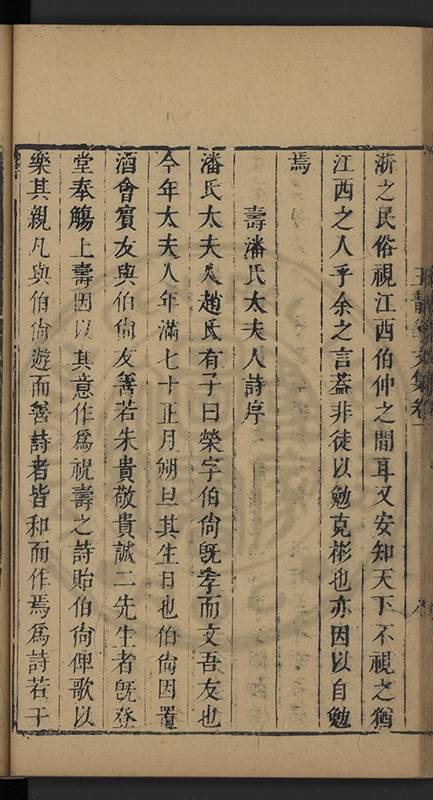 浙之民俗視江西伯仲之間耳又安知天下不視之猶
江西之人乎余之言葢非徒以勉克彬也亦因以自勉
焉
壽潘氏太夫人詩序
潘氏太夫人趙氏有子曰榮字伯尙旣孝而文吾友也
今年太夫人年滿七十正月朔旦其生日也伯尙因置
酒會賓友與伯尙友善若朱貴敬貴誠二先生者旣登
堂奉觴上壽因以其意作爲祝壽之詩貽伯尙俾歌以
樂其親凡與伯尙遊而善詩者皆和而作焉爲詩若干